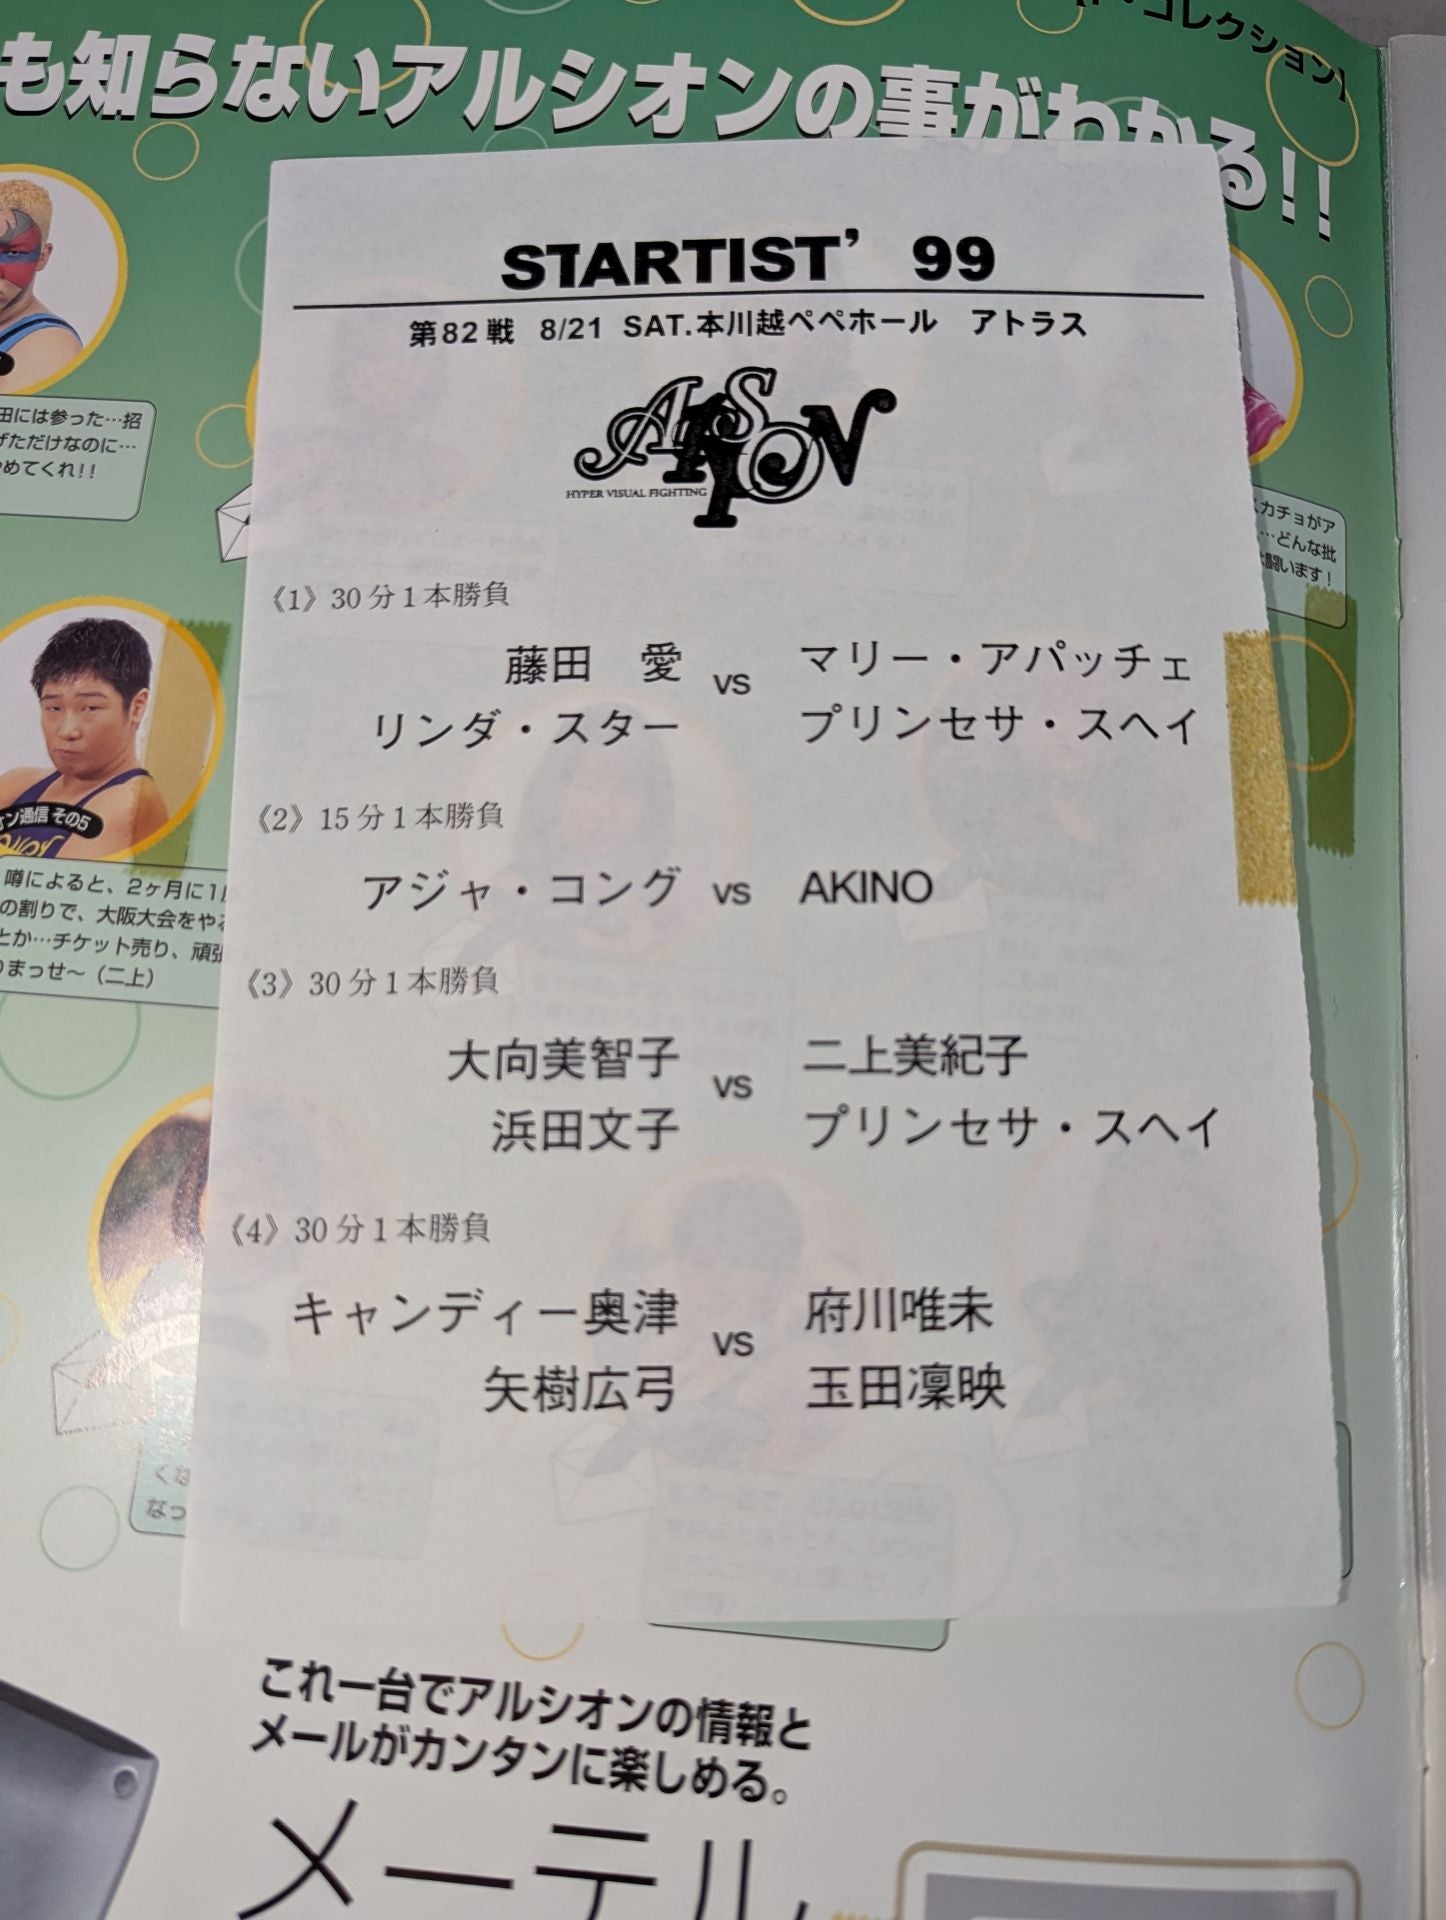 ド・コレクション】
も知らないアルシオンの事がわかる!!
STARTIST’ 99
第82戦 8/21 SAT.本川越ペペホール アトラス
ARSION
HYPER VISUAL FIGHTING
《1》30分1本勝負
藤田 愛 vs マリー・アパッチェ
リンダ・スター プリンセサ・スヘイ
《2》15分1本勝負
アジャ・コング vs AKINO
《3》30分1本勝負
大向美智子 vs 二上美紀子
浜田文子 プリンセサ・スヘイ
《4》30分1本勝負
キャンディー奥津 vs 府川唯未
矢樹広弓 玉田凜映
田には参った…招
げただけなのに…
やめてくれ!!
カチョがア
…どんな批
闘います!
オン通信 その5
噂によると、2ヶ月に1
の割りで、大阪大会をやる
とか…チケット売り、頑張
りまっせ〜(二上)
くな
なっ
これ一台でアルシオンの情報と
メールがカンタンに楽しめる。
メーテル